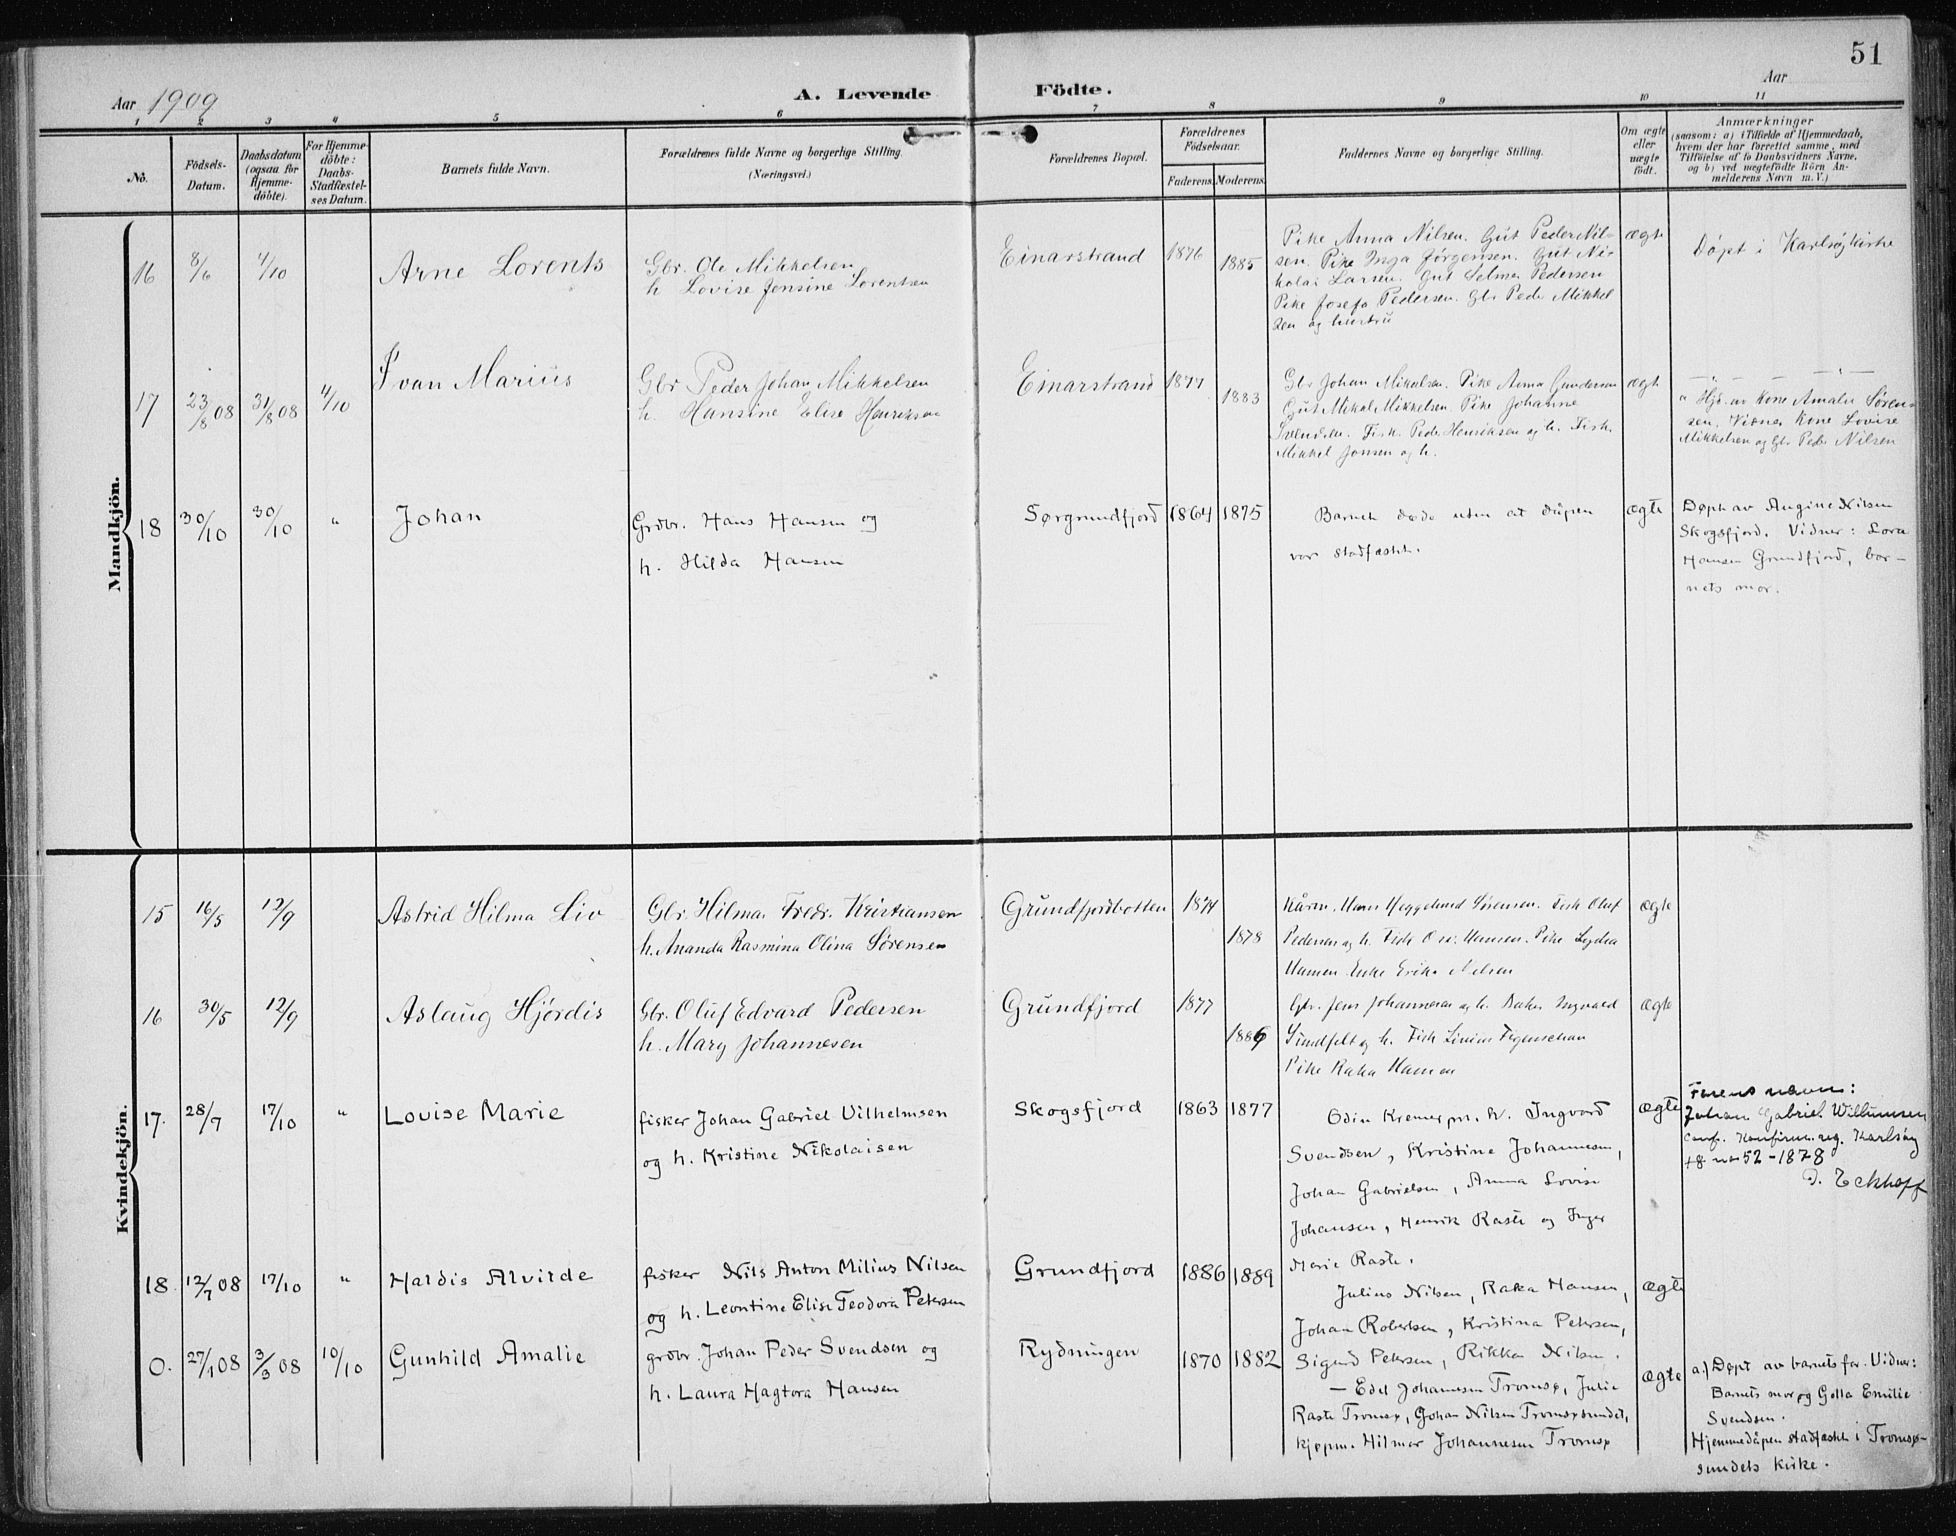 51
Aar 1909
A. Levende Födte.
Aar
1 2 3 4 5 6 7 8 9 10 11
No.
Födsels-
Datum.
Daabsdatum
(ogsaa for
Hjemme-
döbte).
For Hjemme-
döbte:
Daabs-
Stadfæstel-
ses Datum.
Barnets fulde Navn.
Forældrenes fulde Navne og borgerlige Stilling.
(Næringsvei.)
Forældrenes Bopæl.
Forældrenes
Födselsaar.
Faderens. Moderens.
Faddernes Navne og borgerlige Stilling.
Om ægte
eller
uægte
födt.
Anmærkninger
(saasom: a) i Tilfælde af Hjemmedaab,
hvem der har forrettet samme, med
Tilföielse af to Daabsvidners Navne,
og b) ved uægtefödte Börn An-
melderens Navn m. V.)
Mandkjön.
16 8/6 4/10 Arne Lorents
Gbr. Ole Mikkelsen
h Lovise Jensine Lorentsen
Einarstrand 1876 1885
Pike Anna Nilsen. Gut Peder Nil-
sen. Pike Inga Jørgensen. Gut Ni-
kolai Larsen. Gut Selmer Pedersen
Pike Josefa Pedersen. Gbr Peder Mikkel
sen og hustru
ægte
Døpt i Karlsøy kirke
17 23/8 08 31/8 08 4/10 Ivan Marius
Gbr Peder Johan Mikkelsen
h. Hansine Elise Henriksen
Einarstrand 1877 1883
Gbr Johan Mikkelsen. Pike Anna Gundersen
Gut Mikal Mikkelsen. Pike Johanne
Svendsen. Fisk. Peder Henriksen og h. Fisk.
Mikkel Jonsen og h.
ægte
— " — — — " —
" Hjd. av Kone Amalie Søren-
sen. Vidner Kone Lovise
Mikkelsen og Gb. Peder Nilsen
18 30/10 30/10 " Johan
Grdbr. Hans Hansen og
h. Hilda Hansen
Sørgrundfjord 1864 1875
Barnet døde uten at dåpen
var stadfæstet.
ægte
Døpt av Angine Nilsen
Skogsfjord. Vidner: Lora
Hansen Grundfjord, bar-
nets mor.
Kvindekjön.
15 16/5 12/9 Astrid Hilma Liv
Gbr. Hilmar Fredr. Kristiansen
h. Ananda Rasmina Olina Sørensen
Grundfjordbotten 1874 1878
Hans Heggelund Sørensen. Fisk Oluf
Pedersen og h. Fisk Hansen. Pike Lydia
Hansen Enke Erika Nilsen
ægte
16 30/5 12/9 Aslaug Hjördis
Gbr. Oluf Edvard Pedersen
h. Mary Johannesen
Grundfjord 1877 1886
Gbr. Jens Johannesen og h. Ingvald
og h. Fisk Linius Figenschau
Pike Raka Hansen
ægte
17. 28/7 17/10 " Lovise Marie
fisker Johan Gabriel Vilhelmsen
og h. Kristine Nikolaisen
Skogsfjord 1863 1877
Odin Kremer pm. h. Ingvard
Svendsen, Kristine Johannesen,
Johan Gabrielsen, Anna Lovise
Johansen, Henrik Raste og Inger
Marie Raste.
ægte
Farens navn:
Johan Gabriel Willumsen
conf. Konfirm.reg. Karlsøy
nr 52 - 1878
D. Eckhoff
18 12/7 08 17/10 " Haldis Alvilde
fisker Nils Anton Milius Nilsen
og h. Leontine Elise Teodora Petersen
Grundfjord 1886 1889
Julius Nilsen, Raka Hansen,
Johan Robertsen, Kristina Petersen,
Sigurd Petersen, Rikka Nilsen.
ægte
0. 27/1 08 3/3 08 10/10 Gunhild Amalie
grdbr. Johan Peder Svendsen og
h. Laura Hagtora Hansen
Rydningen 1870 1882
— Edel Johannesen Tromsø, Julie
Raste Tromsø, Johan Nilsen Tromsøsundet,
kjøpm. Hilmar Johannesen Tromsø
ægte
a.) Døpt av barnets far. Vidner:
Barnets mor og Golla Emilie
Svendsen.
Hjemmedåpen stadfæstet i Tromsø-
sundets kirke.